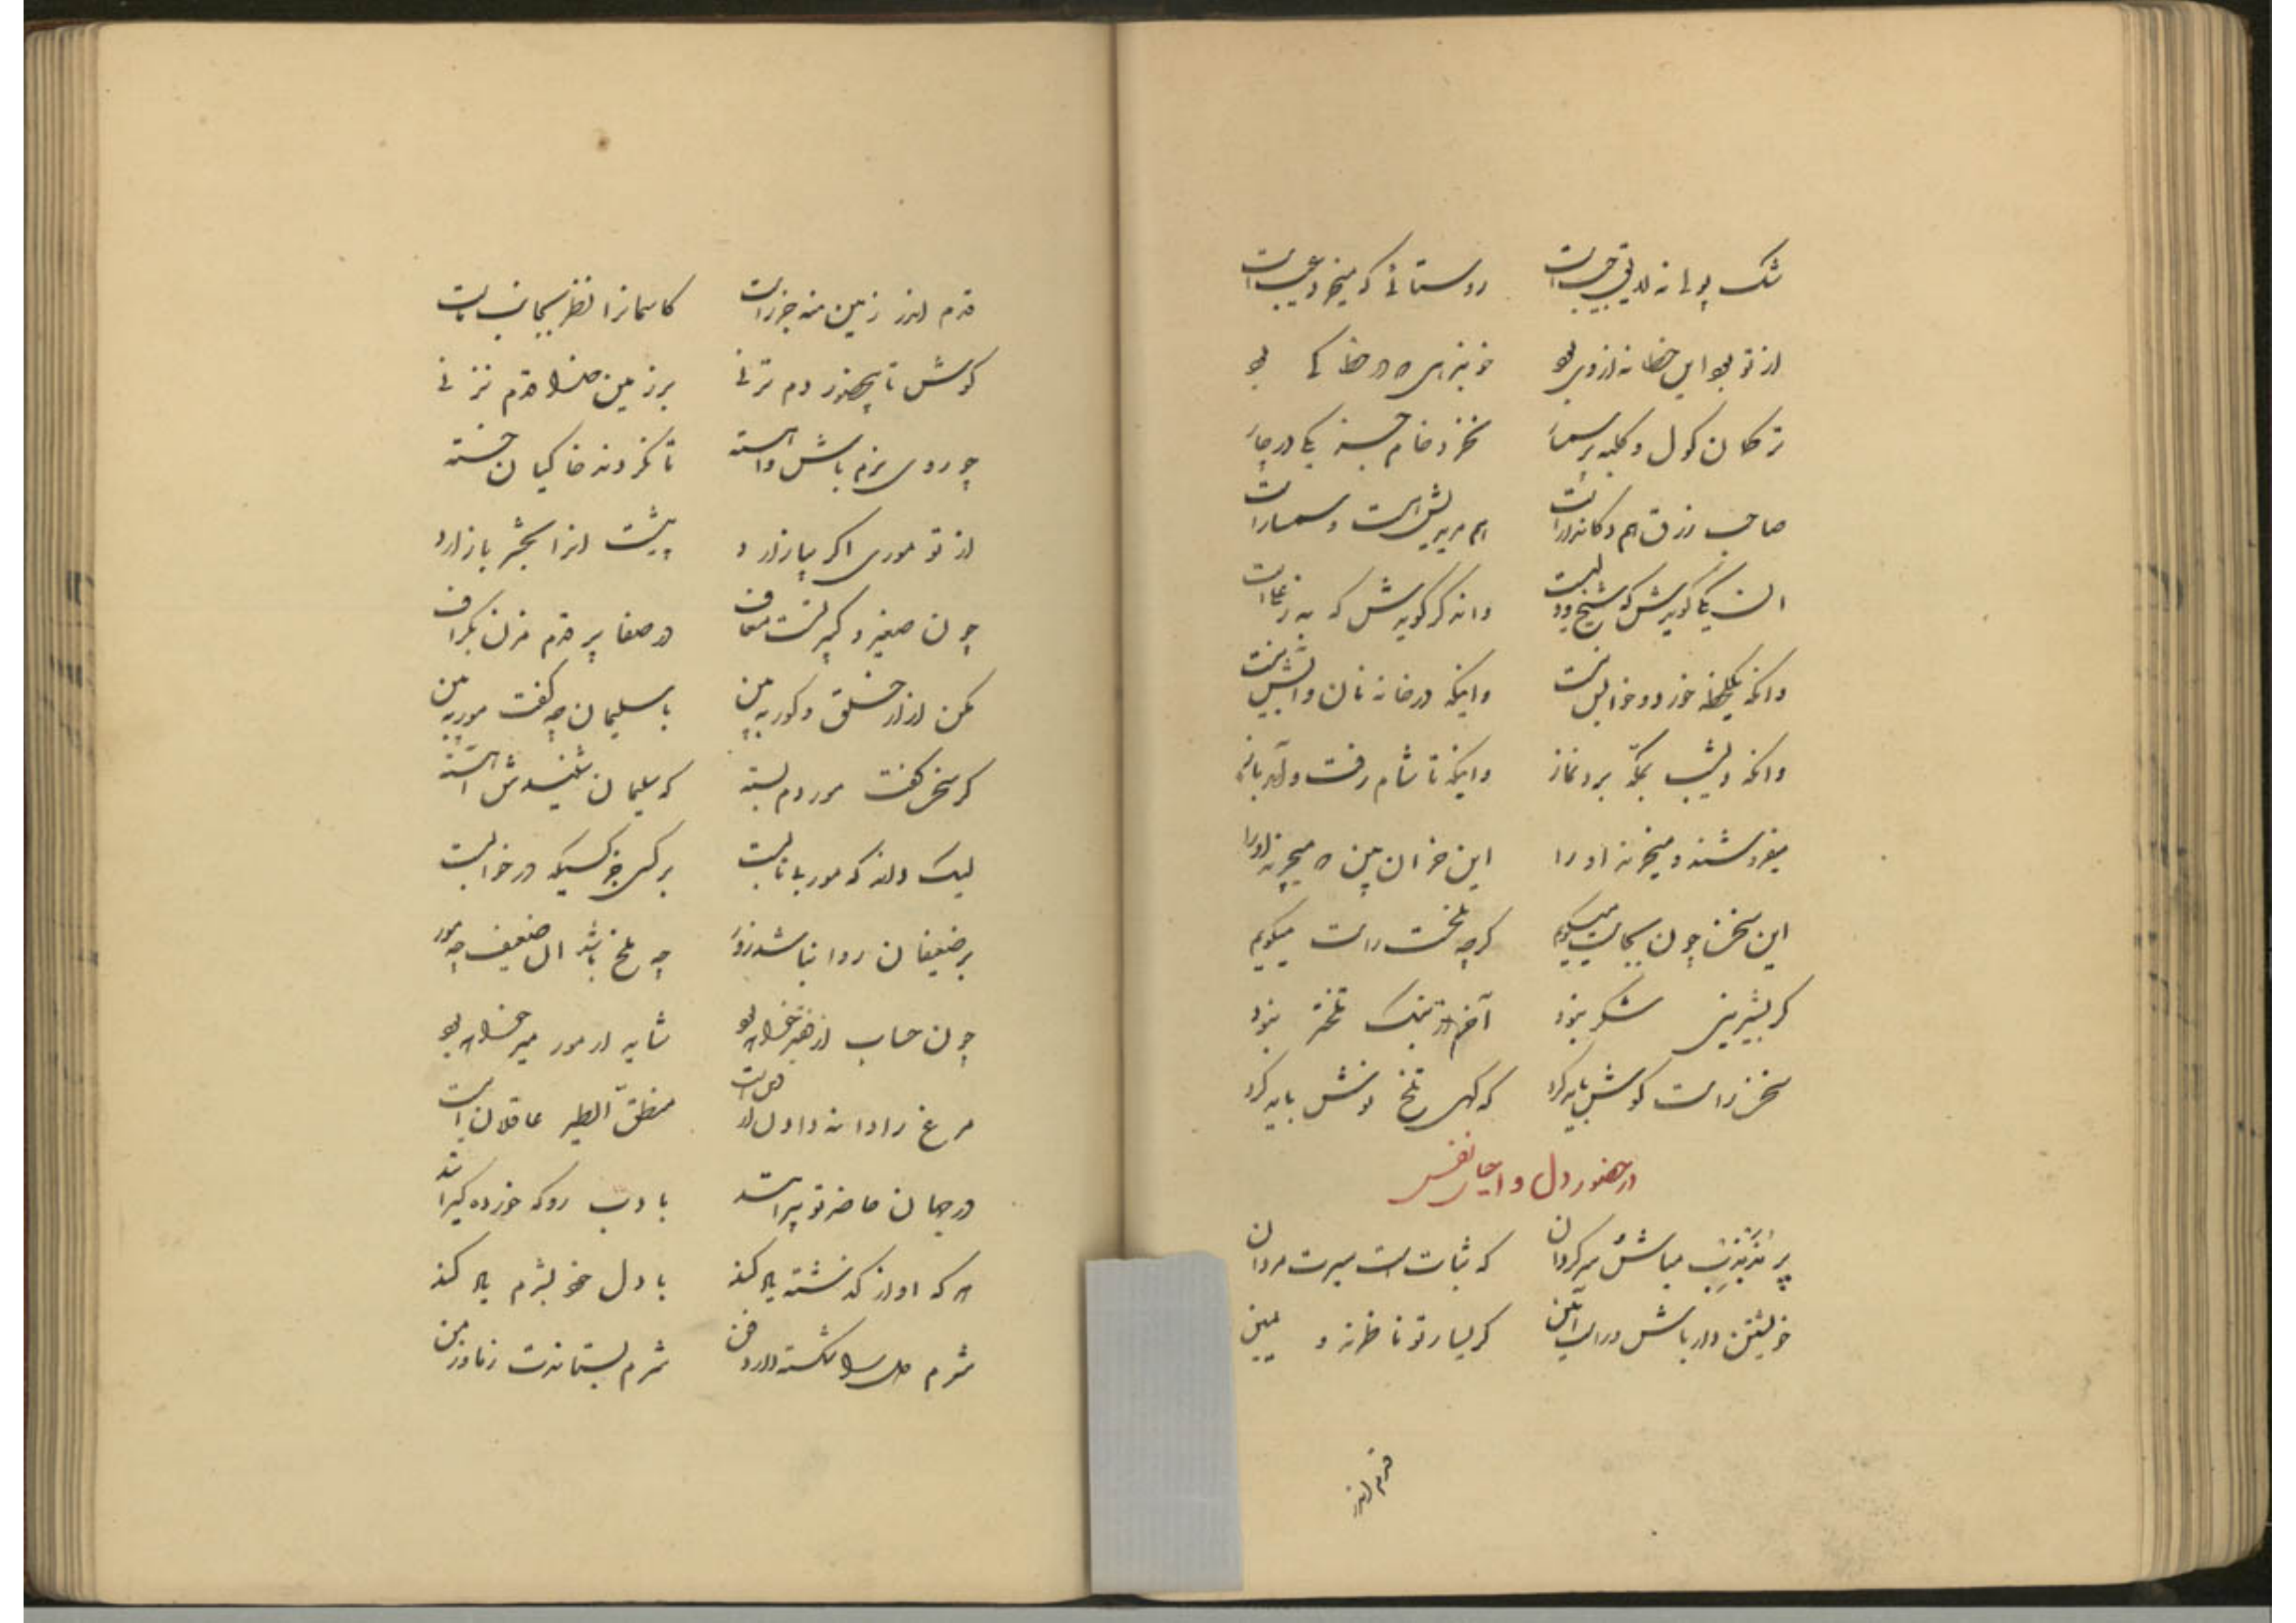 مشک پولی نه لایق جیبست روستائی که میخرد عیبست
از تو بود این خطا نه از وی بود خود نبردی ره در خطا کی بود
ترکمان کول و کلبه پر سمسار نخرد خام جسته یکی در چار
صاحب رزق هم دکاندارست هم مریدیش هست و سمسارست
این یکی گویدش که شیخ و ولیست واندگر گویدش که به ز علیست
وانکه یکلحظه خورد و خوابش نیست وانکه در خانه نان و آتش نیست
وانکه دیشب بمکه برد نماز وانکه تا شام رفت و آمد باز
میفروشند و میخرند او را این خران بین که میچرند او را
این سخن چون بجایست میگویم گرچه تلخست راست میگویم
گر بشیرینی شکر نبود آخر از نمک تلختر نبود
سخن راست گوش باید کرد که گهی تلخ نوش باید کرد
در حضور دل و احیای نفس
پر مذبذب مباش و سرگردان که ثباتست سیرت مردان
خویشتن دار باش در این آئین کز یسار تو ناظرند و یمین
قدم اندر
قدم اندر زمین منه جز راست کاسمانرا نظر بجانب ماست
کوش تا بیحضور دم نزنی بر زمین خدا قدم نزنی
چو روی نرم باش و آهسته تا نگردند خاکیان خسته
از تو موری اگر بیازارد پیشت آنرا بحشر باز آرد
چون صغیر و کبیر نیست معاف در صفا پر قدم مزن بگزاف
مکن آزار خلق و گور ببین با سلیمان چه گفت مور ببین
گر سخن گفت مور دم بسته که سلیمان شنیدش آهسته
لیک داند که مور بی تابست هر کسی جز کسیکه در خوابست
بر ضعیفان روا نباشد زور چه ملخ باشد آن ضعیف چه مور
چون حساب از فقیر خواهد بود شاید ار مور میر خواهد بود
مرغ را دانه داد و دل خواست منطق الطیر عاقلان اینست
در جهان حاضر تو پیرانند با ادب رو که خرده گیرانند
هر که او از گذشته یاد کند با دل خود بشرم یاد کند
شرم دل را شکسته دارد و حزن شرم بستاندت ز مادر من